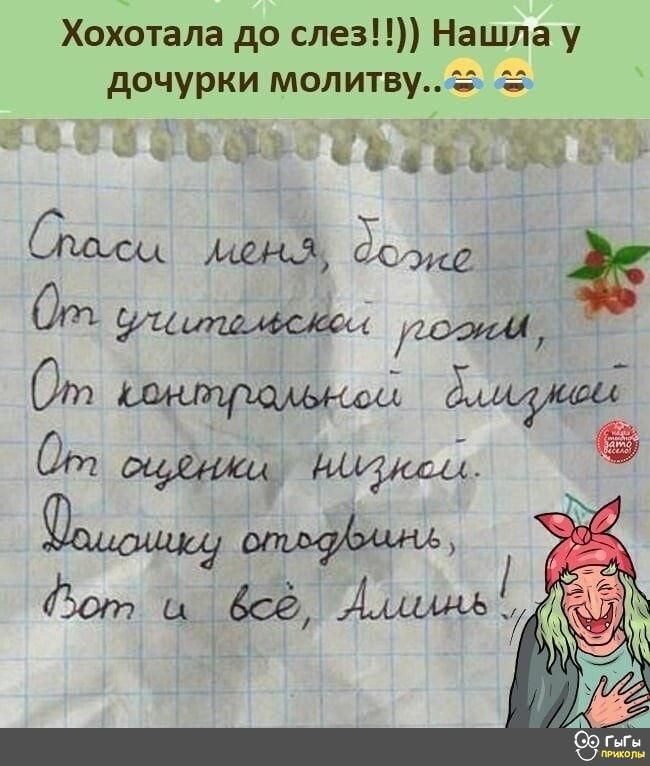 Хохотала до слез!!)) Нашла у
дочурки молитву..😂 😂
Спаси меня, боже
От учительской рожи,
От контрольной близкой
От оценки низкой.
Домашку отодвинь,
Вот и всё, Аминь!
С нами
стыдно
зато
весело!
ГыГы
приколы